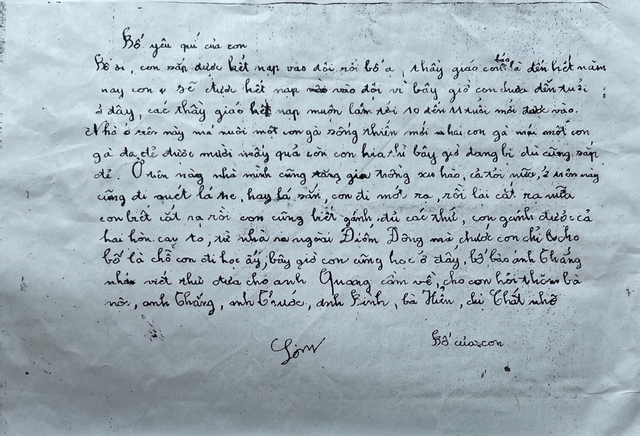 Bố yêu quí của con
Bố ơi, con sắp được kết nạp vào đội rồi bố ạ, thầy giáo con bảo là đến hết năm
nay con sẽ được kết nạp vào đội vì bây giờ con chưa đến tuổi
ở đây, các thầy giáo kết nạp muôn lắm tới 10 đến 11 tuổi mới được vào.
Nhà ở trên này má nuôi một con gà sống thiến mới hai con gà mái một con
gà đã đẻ được mười mấy quả còn con kia thì bây giờ đang bị dù cũng sắp
đẻ. Ở trên này nhà mình cũng tăng gia trồng xu hào, cà tới nữa, ở trên này
cũng đi quét lá tre, hay lá sắn, con đi mót ra, rồi lại cắt ra nữa
con biết cắt rạ rồi con cũng biết gánh đủ các thứ, con gánh được cả
hai hòn cay to, từ nhà ra ngoài Điếm Dông mà trước con chỉ cho
bố là chỗ con đi học ấy, bây giờ con cũng học ở đây, bố bảo anh Thắng
viết thư đưa cho anh Quang cầm về, cho con hỏi thăm bà
nội, anh Thắng, anh Trước, anh Kính, bà Hiền, chị Chắt nhớ
Bố của con